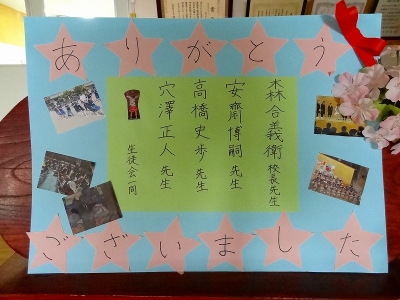 ありがとう
森合義衛 校長先生
安齋博嗣 先生
高橋史歩 先生
穴澤正人 先生
生徒会一同
ございました